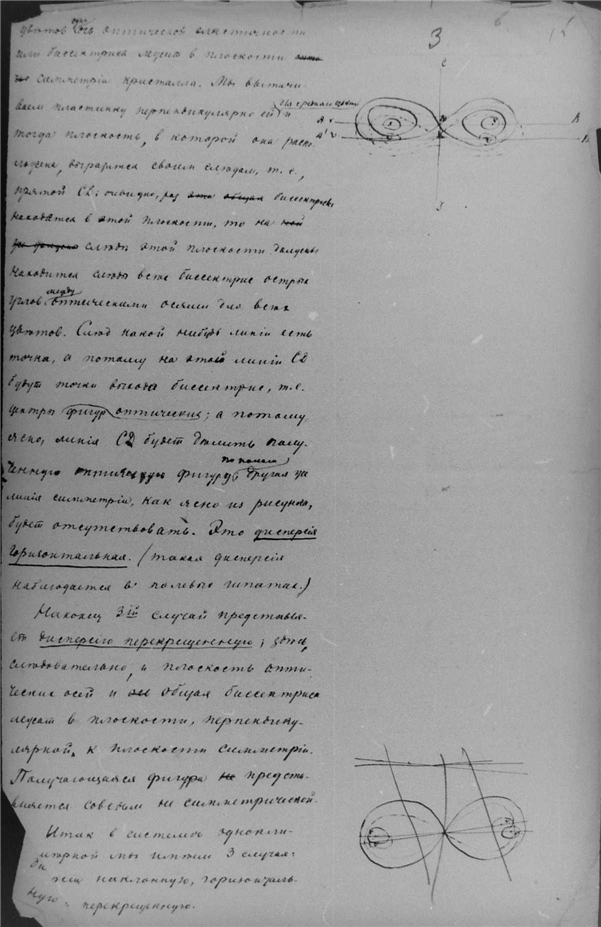 3
цвѣтов ось оптической эластичности
или биссектриса лежит в плоскости
симметріи кристалла. Мы вытачи-
ваем пластинку перпендикулярно ей и
тогда плоскость, в которой она распо-
ложена, выразится своим слѣдам, т. е.,
прямой CD; очевидно, раз биссектрисы
находятся в этой плоскости, то на
слѣдѣ этой плоскости должны
находится слѣды всѣх биссектрис острых
углов между оптическими осями для всѣх
цвѣтов. Слѣд какой нибудь линіи есть
точка, а потому на этой линіи CD
будут точки выхода биссектрис, т.е.
центры фигур оптических; а потому
ясно, линія CD будет дѣлить полу-
ченную оптическую фигуру по полам другая же
линія симметріи, как ясно из рисунка,
будет отсутствовать. Это дисперсія
горизонтальная. (такая дисперсія
наблюдается в полевых шпатах.)
Наконец 3ій случай представля-
ет дисперсію перекрещенную; здѣсь,
слѣдовательно, и плоскость опти-
ческих осей и общая биссектриса
лежат в плоскости, перпендику-
лярной к плоскости симметріи.
Получающаяся фигура предста-
вляется совсѣм не симметрической.
Итак в системѣ однокли-
номѣрной мы имѣем 3 случая:
наклонную, горизонталь-
ную и перекрещенную.
C
A
B
A'